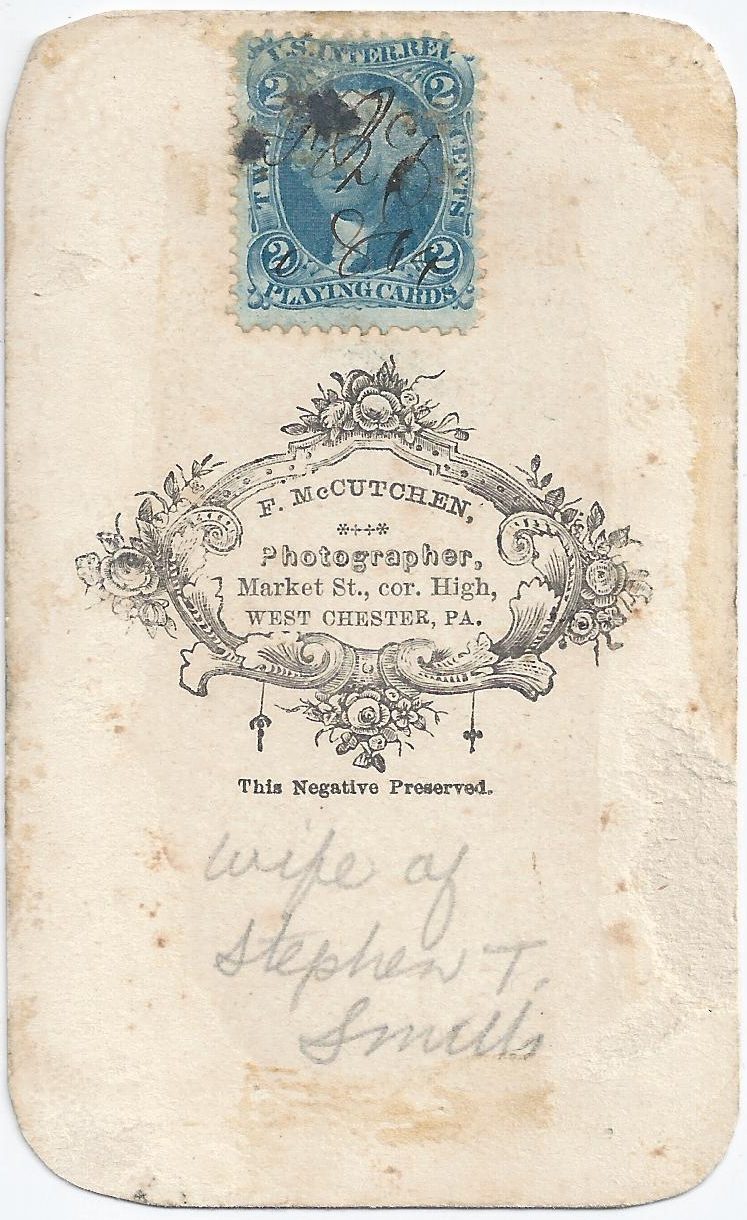 U.S. INTER. REV.
2 2
TWO CENTS
2 2
PLAYING CARDS
F. McCUTCHEN,
Photographer,
Market St., cor. High,
WEST CHESTER, PA.
This Negative Preserved.
Wife of
Stephen T.
Smith